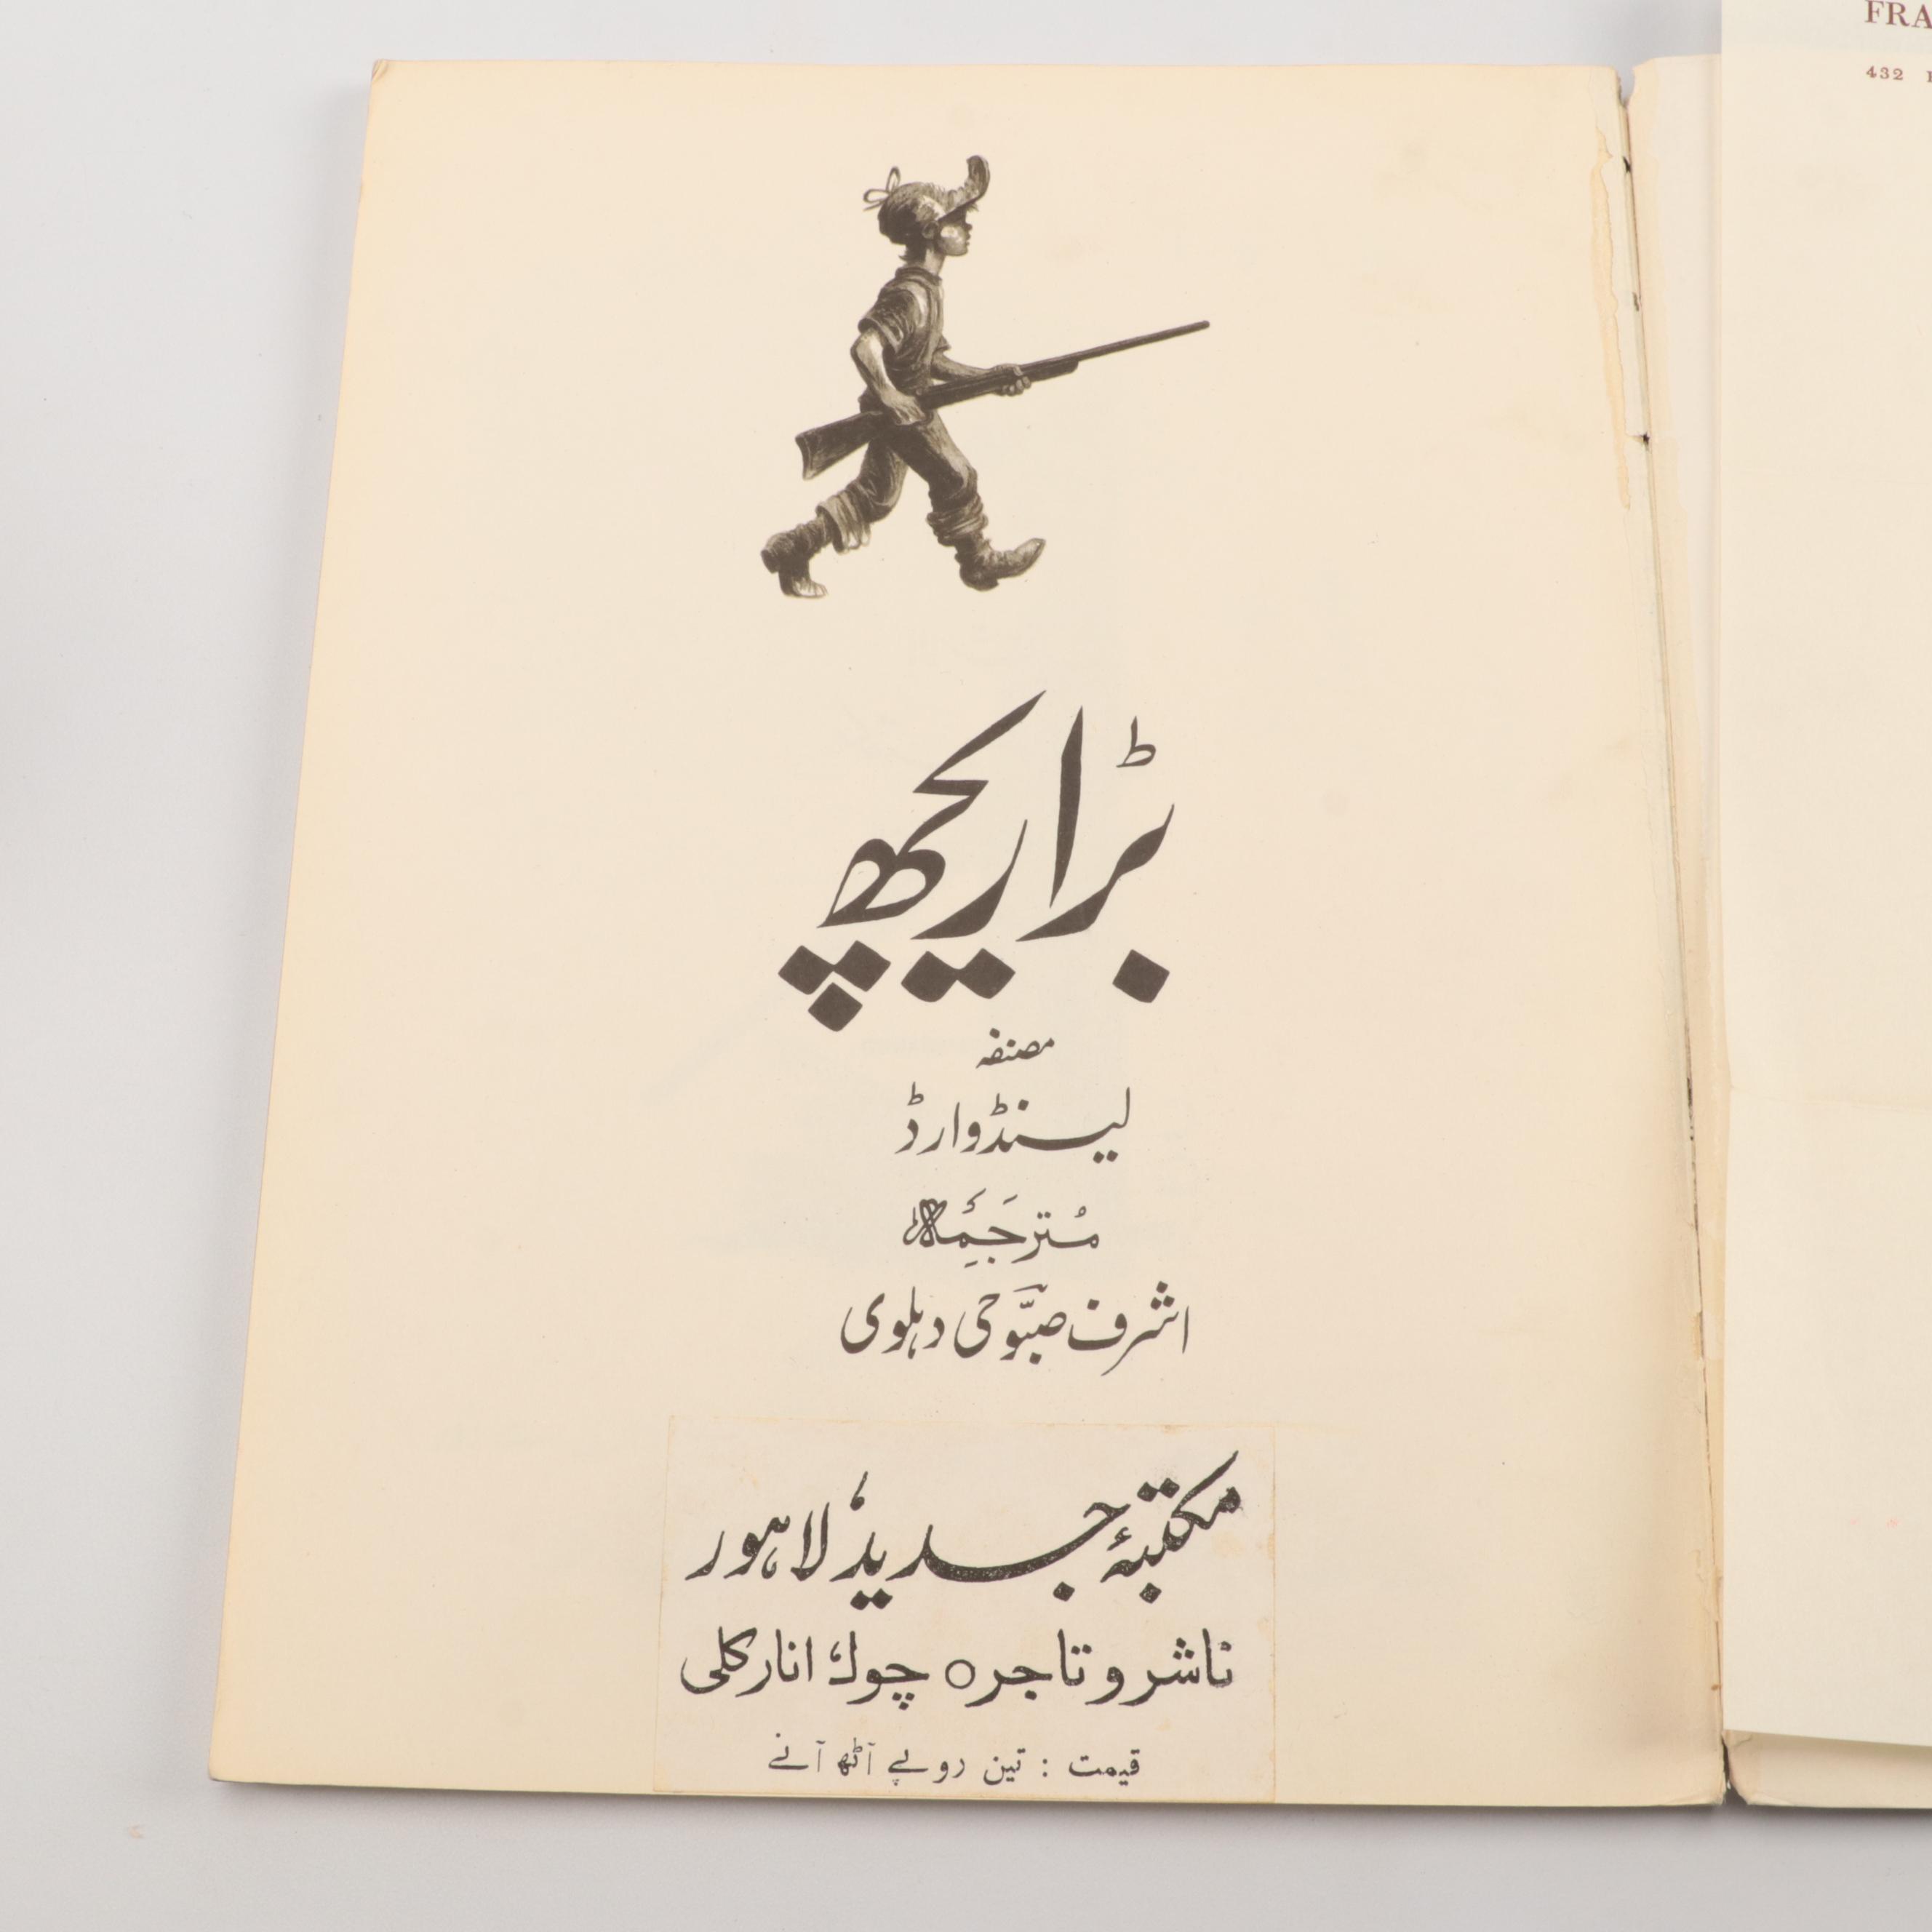 بڑا ریچھ
مصنفہ
لیسنڈ وارڈ
مُترجَمِہٴ
اشرف صبّوحی دہلوی
مکتبۂ جدید، لاہور
ناشر و تاجر ○ چوک انارکلی
قیمت : تین روپے آٹھ آنے
FRA
432